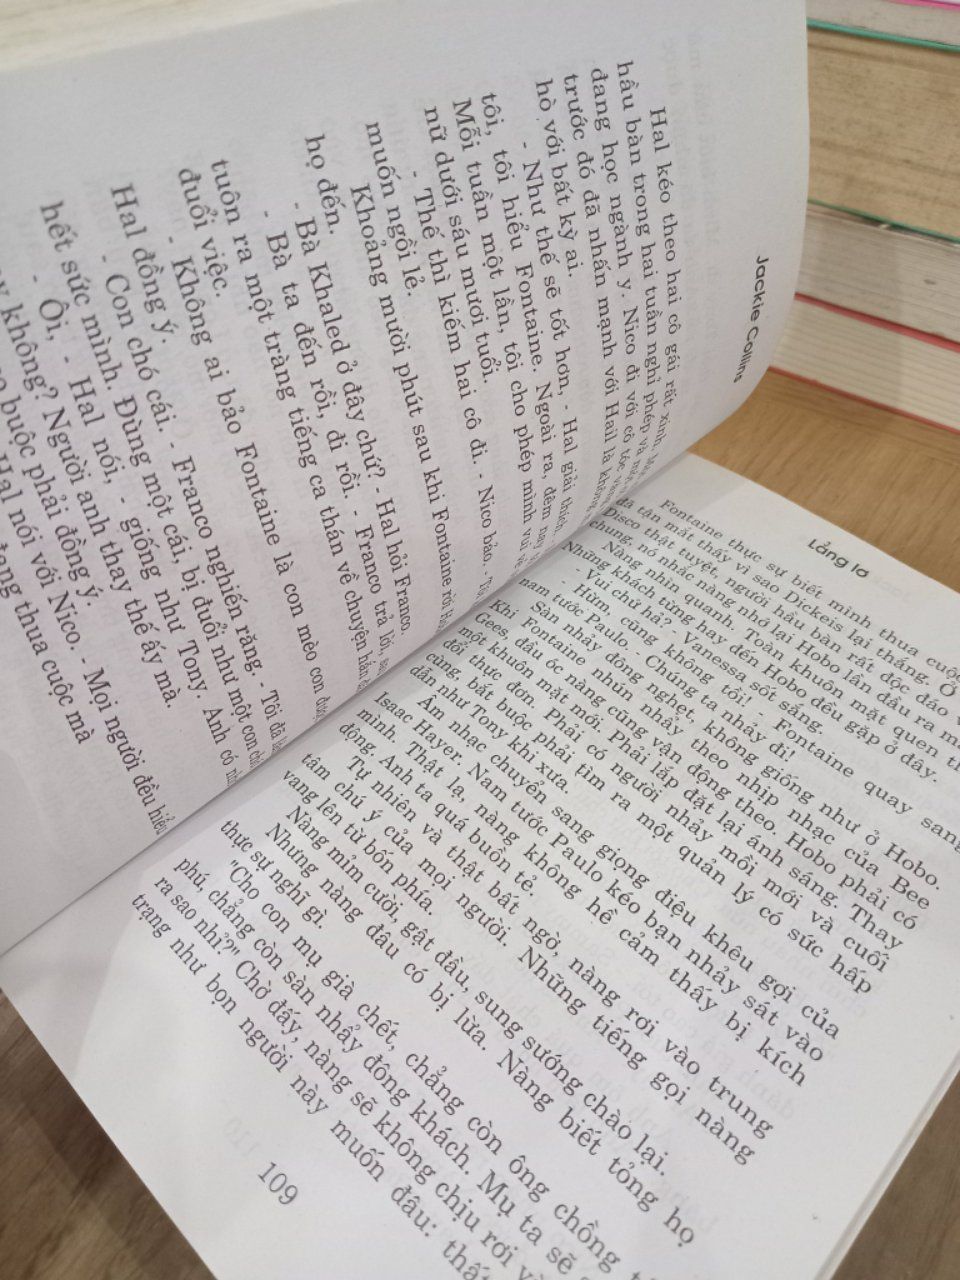 Jackie Collins
Hal kéo theo hai cô gái rất xinh,
hầu bàn trong hai tuần nghỉ phép và
đang học ngành y. Nico đi với cô tóc
trước đó đã nhấn mạnh với Hail là không
hò với bất kỳ ai.
- Như thế sẽ tốt hơn, - Hal giải thích
tôi, tôi hiểu Fontaine. Ngoài ra, đêm nay
Mỗi tuần một lần, tôi cho phép mình vui
nữ dưới sáu mươi tuổi.
- Thế thì kiếm hai cô đi. - Nico bảo. - Tôi
muốn ngồi lẻ.
Khoảng mười phút sau khi Fontaine rời
họ đến.
- Bà Khaled ở đây chứ? - Hal hỏi Franco.
- Bà ta đến rồi, đi rồi. - Franco trả lời,
tuôn ra một tràng tiếng ca thán về chuyện hắn
đuổi việc.
- Không ai bảo Fontaine là con mèo con
Hal đồng ý.
- Con chó cái. - Franco nghiến răng. - Tôi đã
hết sức mình. Đùng một cái, bị đuổi như một con
- Ôi, - Hal nói, - giống như Tony. Anh có
không? Người anh thay thế ấy mà.
buộc phải đồng ý.
Hal nói với Nico. - Mọi người đều hiểu
đang thua cuộc mà
Lẳng lơ
Fontaine thực sự biết mình thua cuộc
đã tận mắt thấy vì sao Dickeis lại thắng. Ở
Disco thật tuyệt, người hầu bàn rất độc đáo
chung, nó nhắc nàng nhớ lại Hobo lần đầu ra
Nàng nhìn quanh. Toàn khuôn mặt quen
Những khách từng hay đến Hobo đều gặp ở đây.
- Vui chứ hả? - Vanessa sốt sắng.
- Hừm, cũng không tồi! - Fontaine quay sang
nam tước Paulo. - Chúng ta nhảy đi!
Sàn nhảy đông nghẹt, không giống như ở Hobo.
Khi Fontaine nhún nhảy theo nhịp nhạc của Bee
Gees, đầu óc nàng cũng vận động theo. Hobo phải có
một khuôn mặt mới. Phải lắp đặt lại ánh sáng. Thay
đổi thực đơn. Phải có người nhảy mồi mới và cuối
cùng, bắt buộc phải tìm ra một quản lý có sức hấp
dẫn như Tony khi xưa.
Âm nhạc chuyển sang giọng điệu khêu gợi của
Isaac Hayer. Nam tước Paulo kéo bạn nhảy sát vào
mình. Thật lạ, nàng không hề cảm thấy bị kích
động. Anh ta quá buồn tẻ.
Tự nhiên và thật bất ngờ, nàng rơi vào trung
tâm chú ý của mọi người. Những tiếng gọi nàng
vang lên từ bốn phía.
Nàng mỉm cười, gật đầu, sung sướng chào lại.
Nhưng nàng đâu có bị lừa. Nàng biết tỏng họ
thực sự nghĩ gì.
"Cho con mụ già chết, chẳng còn ông chồng
phú, chẳng còn sàn nhảy đông khách. Mụ ta sẽ
ra sao nhỉ?" Chờ đấy, nàng sẽ không chịu rơi
trạng như bọn người này muốn đâu: thất
109